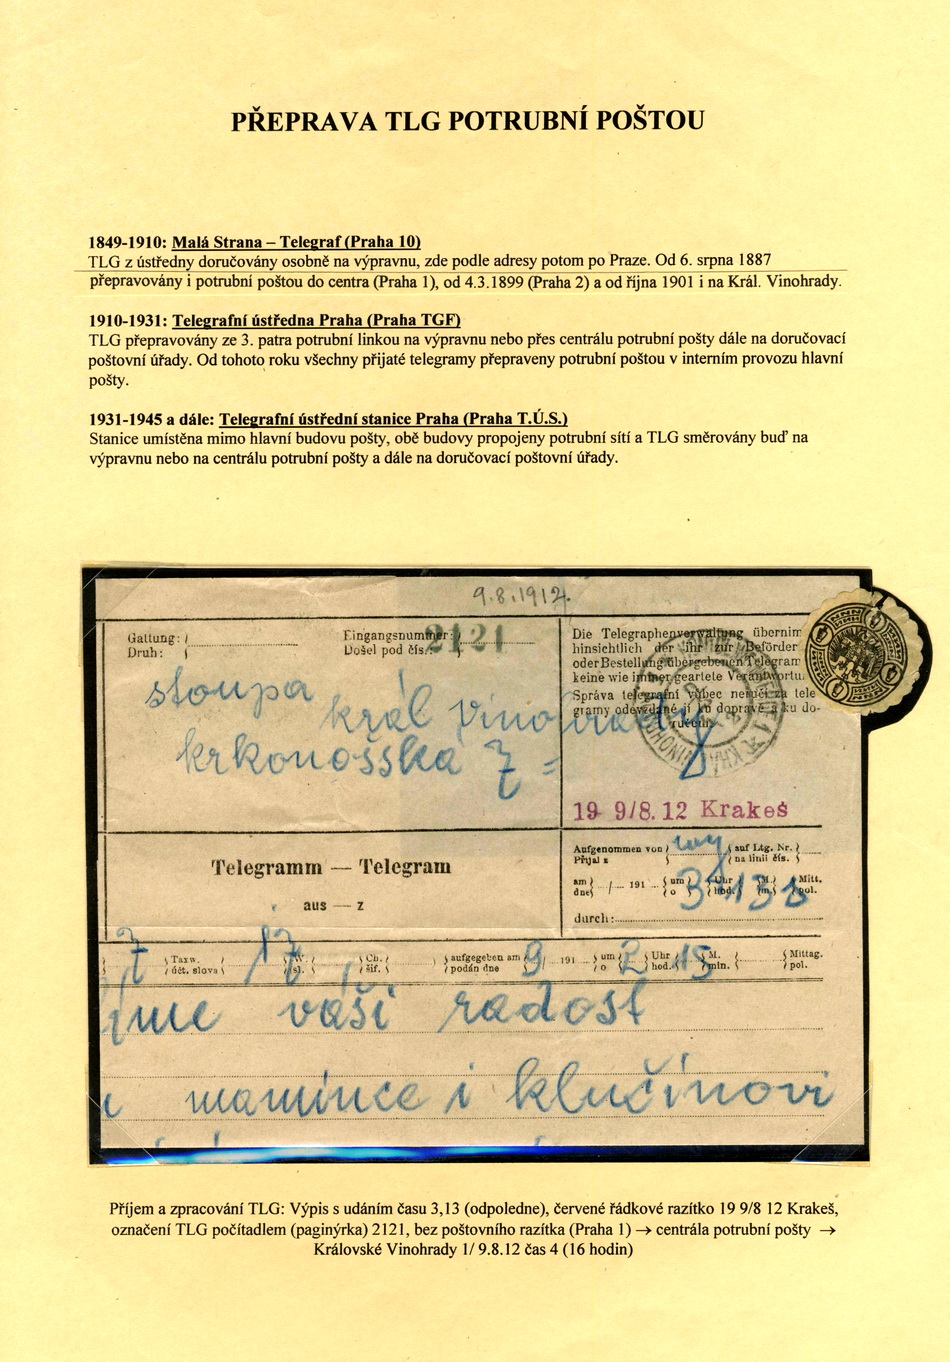 PŘEPRAVA TLG POTRUBNÍ POŠTOU
1849-1910: Malá Strana – Telegraf (Praha 10)
TLG z ústředny doručovány osobně na výpravnu, zde podle adresy potom po Praze. Od 6. srpna 1887
přepravovány i potrubní poštou do centra (Praha 1), od 4.3.1899 (Praha 2) a od října 1901 i na Král. Vinohrady.
1910-1931: Telegrafní ústředna Praha (Praha TGF)
TLG přepravovány ze 3. patra potrubní linkou na výpravnu nebo přes centrálu potrubní pošty dále na doručovací
poštovní úřady. Od tohoto roku všechny přijaté telegramy přepraveny potrubní poštou v interním provozu hlavní
pošty.
1931-1945 a dále: Telegrafní ústřední stanice Praha (Praha T.Ú.S.)
Stanice umístěna mimo hlavní budovu pošty, obě budovy propojeny potrubní sítí a TLG směrovány buď na
výpravnu nebo na centrálu potrubní pošty a dále na doručovací poštovní úřady.
9.8.1912.
Gattung:
Druh:
Eingangsnummer:
Došel pod čís.:
2121
Die Telegraphenverwaltung übernim
hinsichtlich der ihr zur Beförder
oder Bestellung übergebenen Telegram
keine wie immer geartete Verantwortu
Správa telegrafní vůbec neručí za tele
gramy odevzdané jí ku dopravě a ku do-
ručení.
stoupa
král vinohrady
krkonošska 7 =
19 9/8. 12 Krakeš
Telegramm — Telegram
aus — z
Aufgenommen von
Přijal z
auf Ltg. Nr.
na linii čís.
am
dne
/ 191
um
o
Uhr
hod.
M.
m.
Mitt.
pol.
3 13
durch:
7 17
Taxw.
účt. slova
W.
sl.
Ch.
šif.
aufgegeben am
podán dne
9
191
um
o
2
Uhr
hod.
15
M.
min.
Mittag.
pol.
jme vaši radost
i mamince i klučinovi
Příjem a zpracování TLG: Výpis s udáním času 3,13 (odpoledne), červené řádkové razítko 19 9/8 12 Krakeš,
označení TLG počítadlem (paginýrka) 2121, bez poštovního razítka (Praha 1) → centrála potrubní pošty →
Královské Vinohrady 1/ 9.8.12 čas 4 (16 hodin)